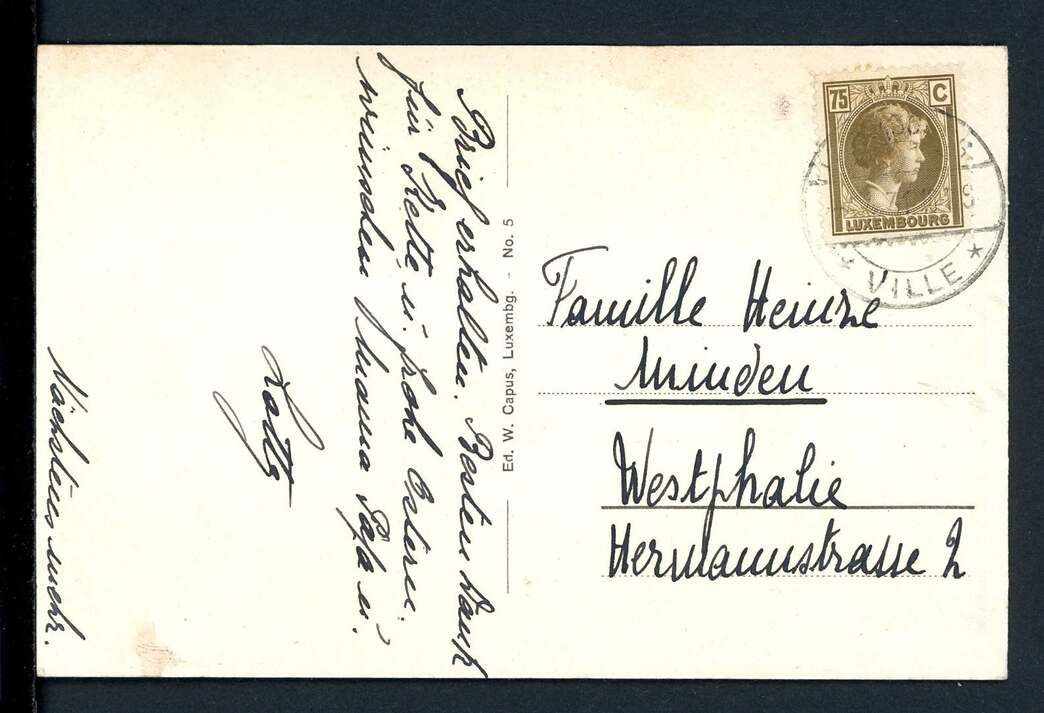 Brief erhalten. Besten Dank
für Kette u. frohe Ostern.
wünschen Mama Papa u.
Lotte
Nächstens mehr.
Ed. W. Capus, Luxembg. - No. 5
75 C
LUXEMBOURG
VILLE
Familie Heinze
Minden
Westphalie
Hermannstrasse 2